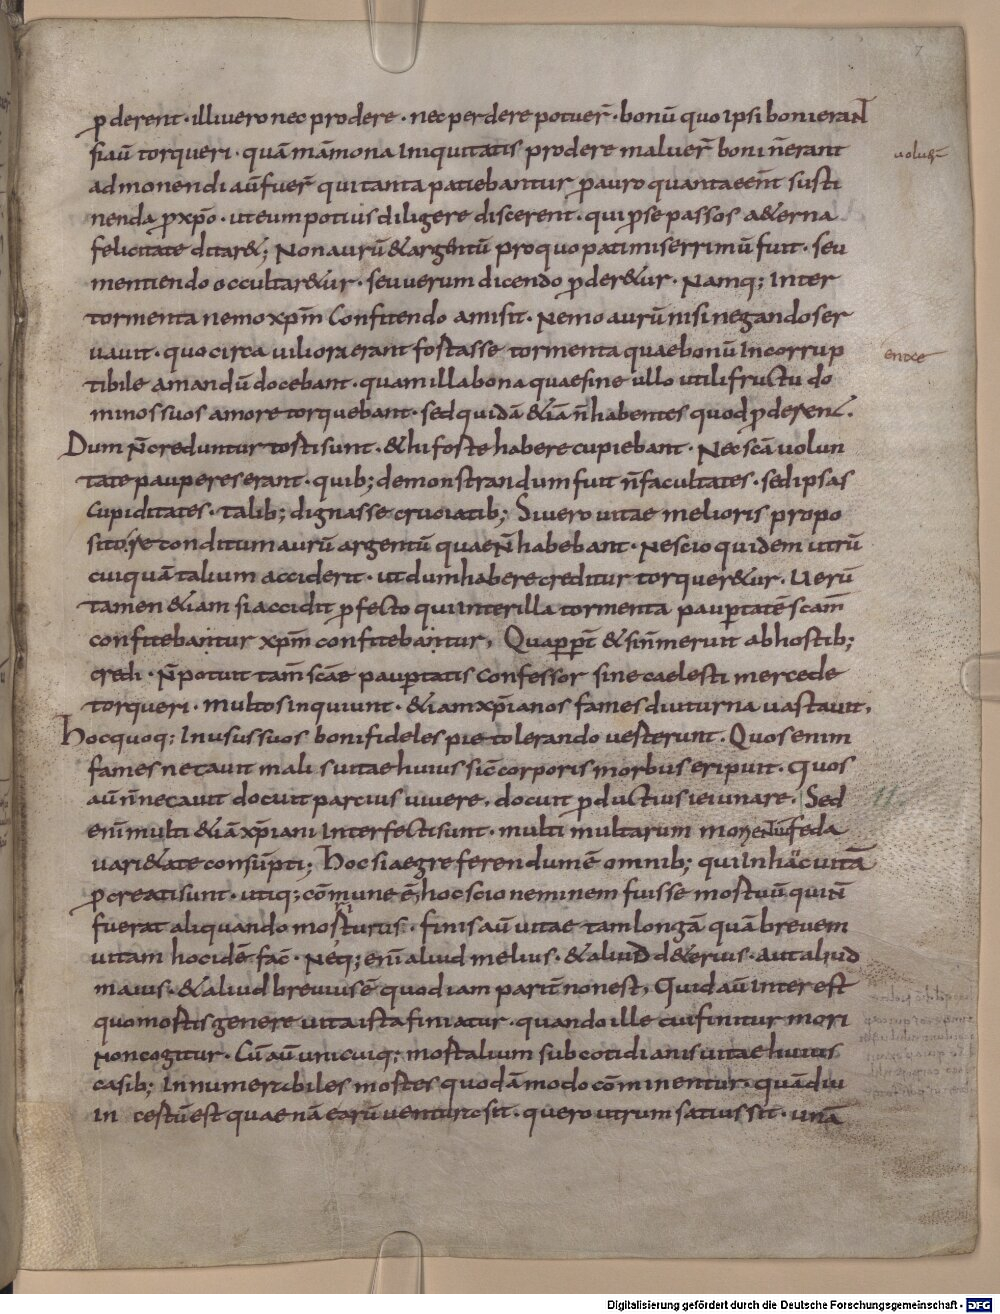 7
ꝑderent · illi uero nec prodere · nec perdere potuer̄ · bonū quo ipsi boni erant
fiaū torqueri · quā māmona iniquitatis prodere maluer̄ boni n̄ erant
uoluer̄
admonendi aū fuer̄ qui tanta patiebantur ꝑ auro quanta eēnt susti
nenda ꝓ xp̄o · ut eum potius diligere discerent · qui ꝓ se passos a&erna
felicitate ditar&; Non aurū & argentū pro quo pati miserrimū fuit · seu
mentiendo occultar&ur · seu uerum dicendo ꝑder&ur · Namq; inter
tormenta nemo xp̄m confitendo amisit · Nemo aurū nisi negando ser
uauit · quo circa uiliora erant fortasse tormenta quae bonū incorrup
tibile amandū docebant · quam illa bona quae sine ullo utili fructu do
minos suos amore torquebant · sed quidā &iā n̄ habentes quod ꝑderent.
Dum n̄ creduntur torti sunt · & hi forte habere cupiebant · Nec sc̄a uolun
tate pauperes erant · quib; demonstrandum fuit n̄ facultates · sed ipsas
cupiditates · talib; dignas se cruciatib; Si uero uitae melioris propo
sito re conditum aurū argentū quae n̄ habebant · Nescio quidem utrū
cuiquā talium acciderit · ut dum habere creditur torquer&ur · Uerū
tamen &iam si accidit ꝑfecto qui inter illa tormenta pauꝑtatē sc̄am
confitebantur xp̄m confitebantur, Quaꝓpt̄ & si n̄ meruit ab hostib;
credi · n̄ potuit tam̄ sc̄ae pauꝑtatis confessor sine caelesti mercede
torqueri · multos inquiunt · &iam xp̄ianos fames diuturna uastauit,
Hoc quoq; in usus suos boni fideles pie tolerando uerterunt. Quos enim
fames necauit malis uitae huius sic corporis morbus eripuit · quos
aū n̄ necauit docuit parcius uiuere, docuit ꝑductius ieiunare. Sed
enī multi &iā xp̄iani interfecti sunt · multi multarum mortium feda
uari&ate consūpti; Hoc si aegre ferendum ē omnib; qui in hāc uitā
ꝑcreati sunt · utiq; cōmune ē, hoc scio neminem fuisse mortuū qui n̄
fuerat aliquando moriturus · finis aū uitae tam longā quā breuem
uitam hoc idē fac̄ · Neq; enī aliud melius · & aliud d&erius · aut aliud
maius · & aliud breuius ē quod iam pariē non est, Quid aū interest
quo mortis genere uita ista finiatur · quando ille cui finitur mori
non cogitur · Cū aū unicuiq; mortalium sub cotidianis uitae huius
casib; innumerabiles mortes quodā modo cōminentur · quādiu
in cestū est quae nā earū uentura sit · quero utrum satius sit · unā
Digitalisierung gefördert durch die Deutsche Forschungsgemeinschaft - DFG